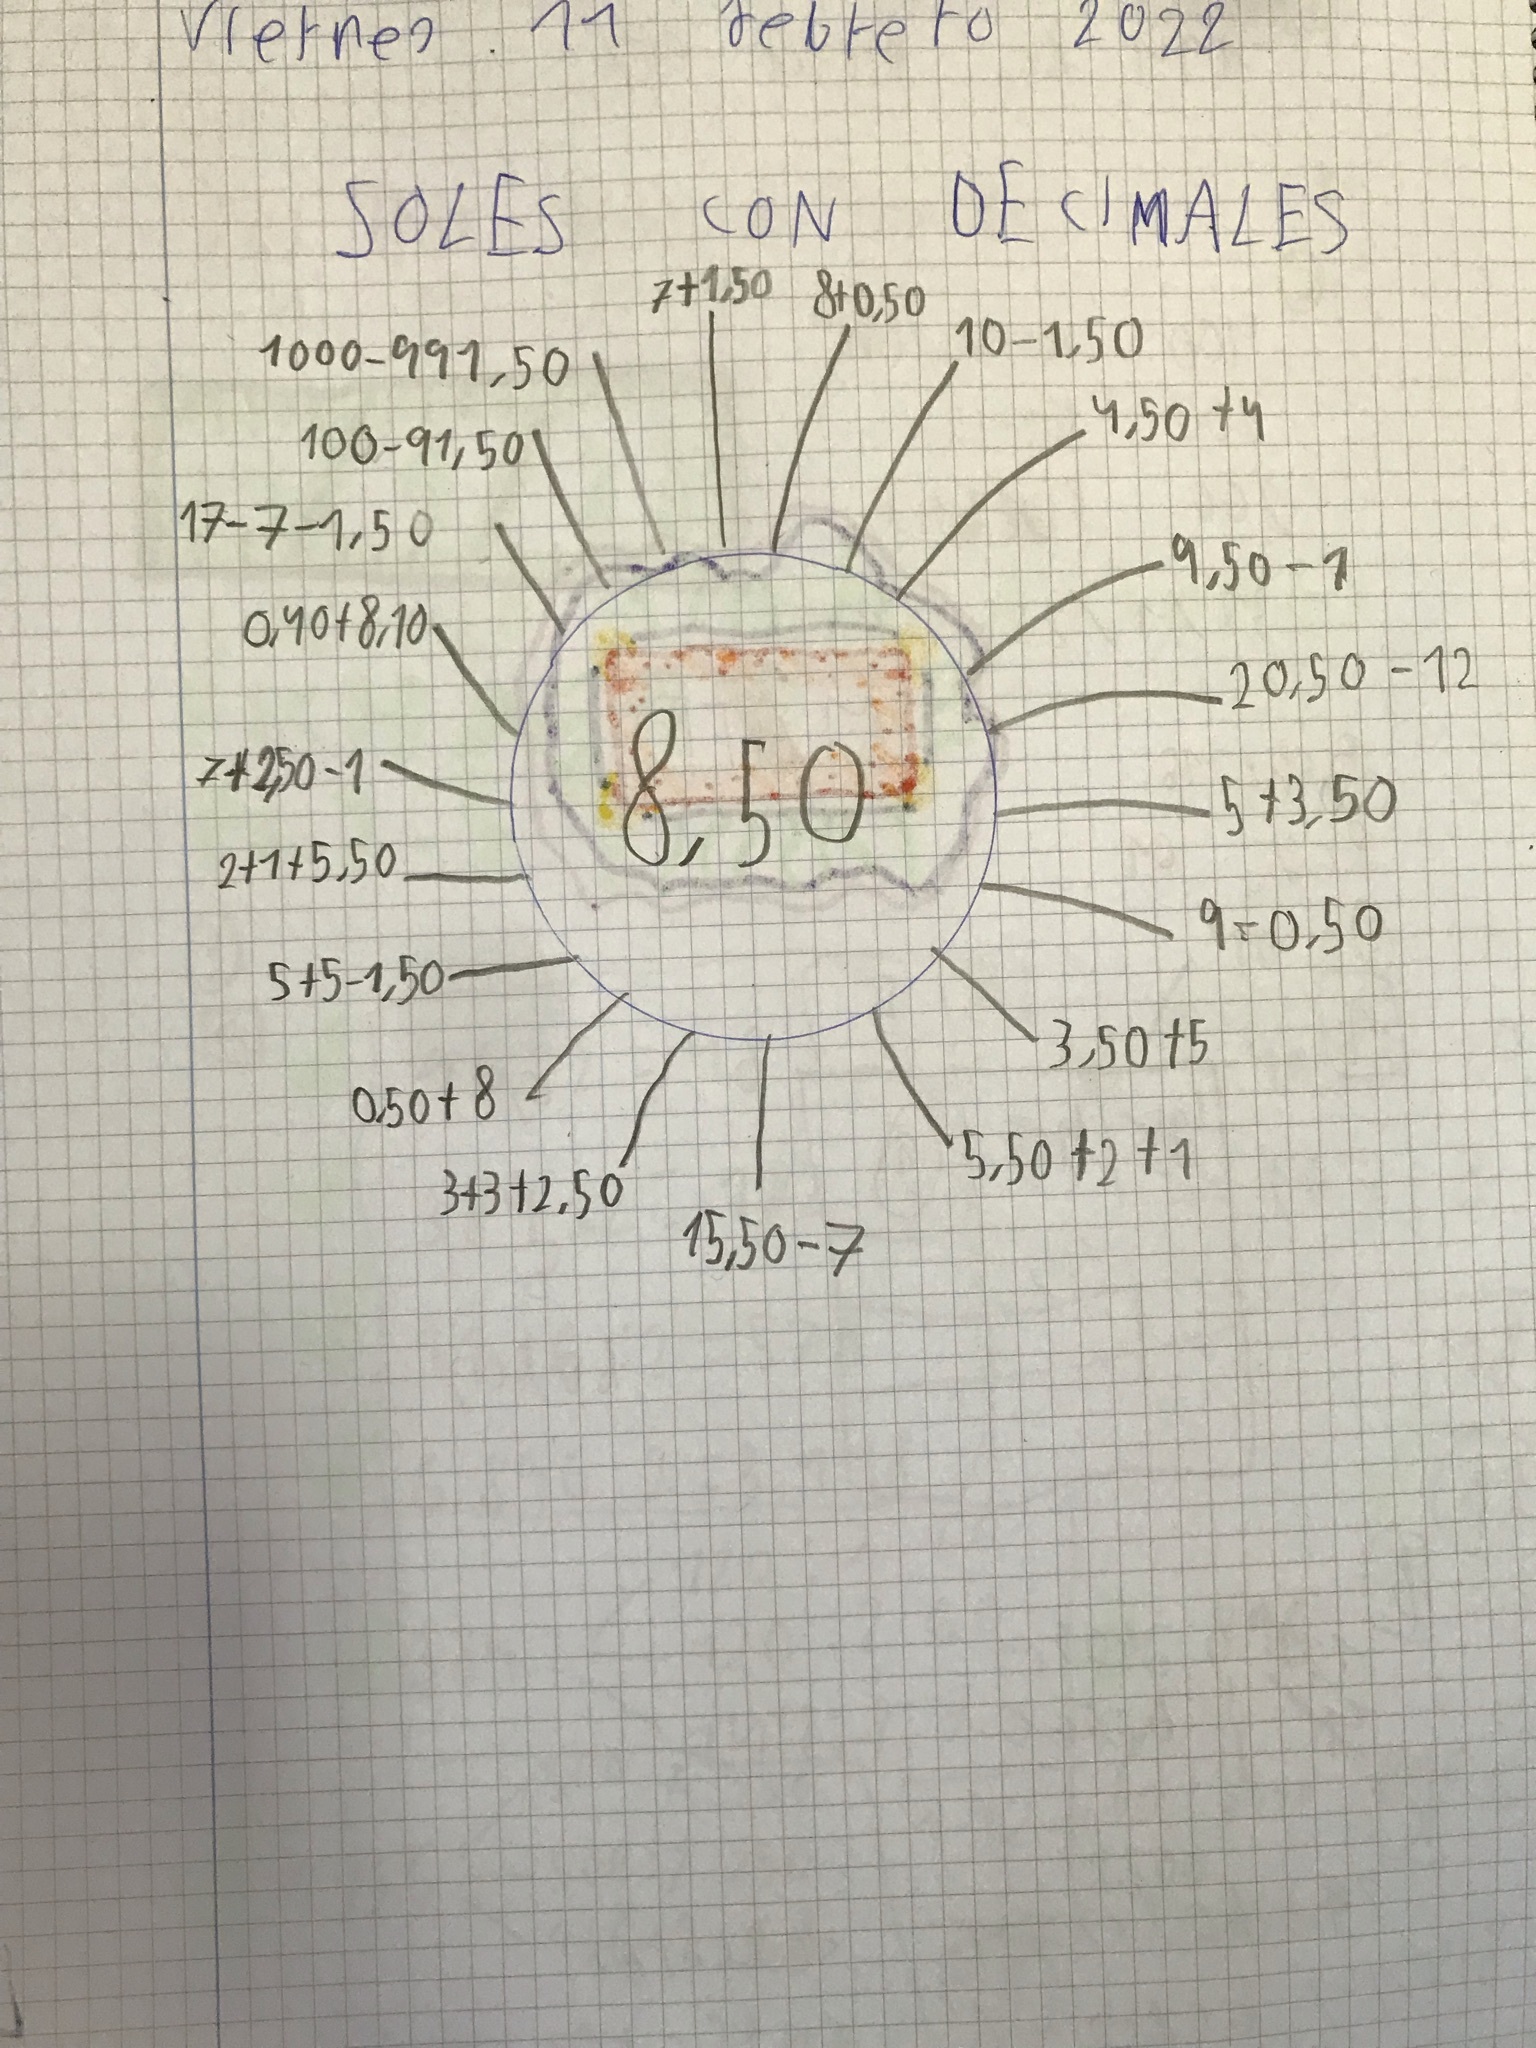 Viernes 11 febrero 2022
SOLES CON DECIMALES
7+1,50
8+0,50
10-1,50
4,50+4
9,50-1
20,50-12
5+3,50
9-0,50
3,50+5
5,50+2+1
15,50-7
3+3+2,50
0,50+8
5+5-1,50
2+1+5,50
7+2,50-1
0,40+8,10
17-7-1,50
100-91,50
1000-991,50
8,50